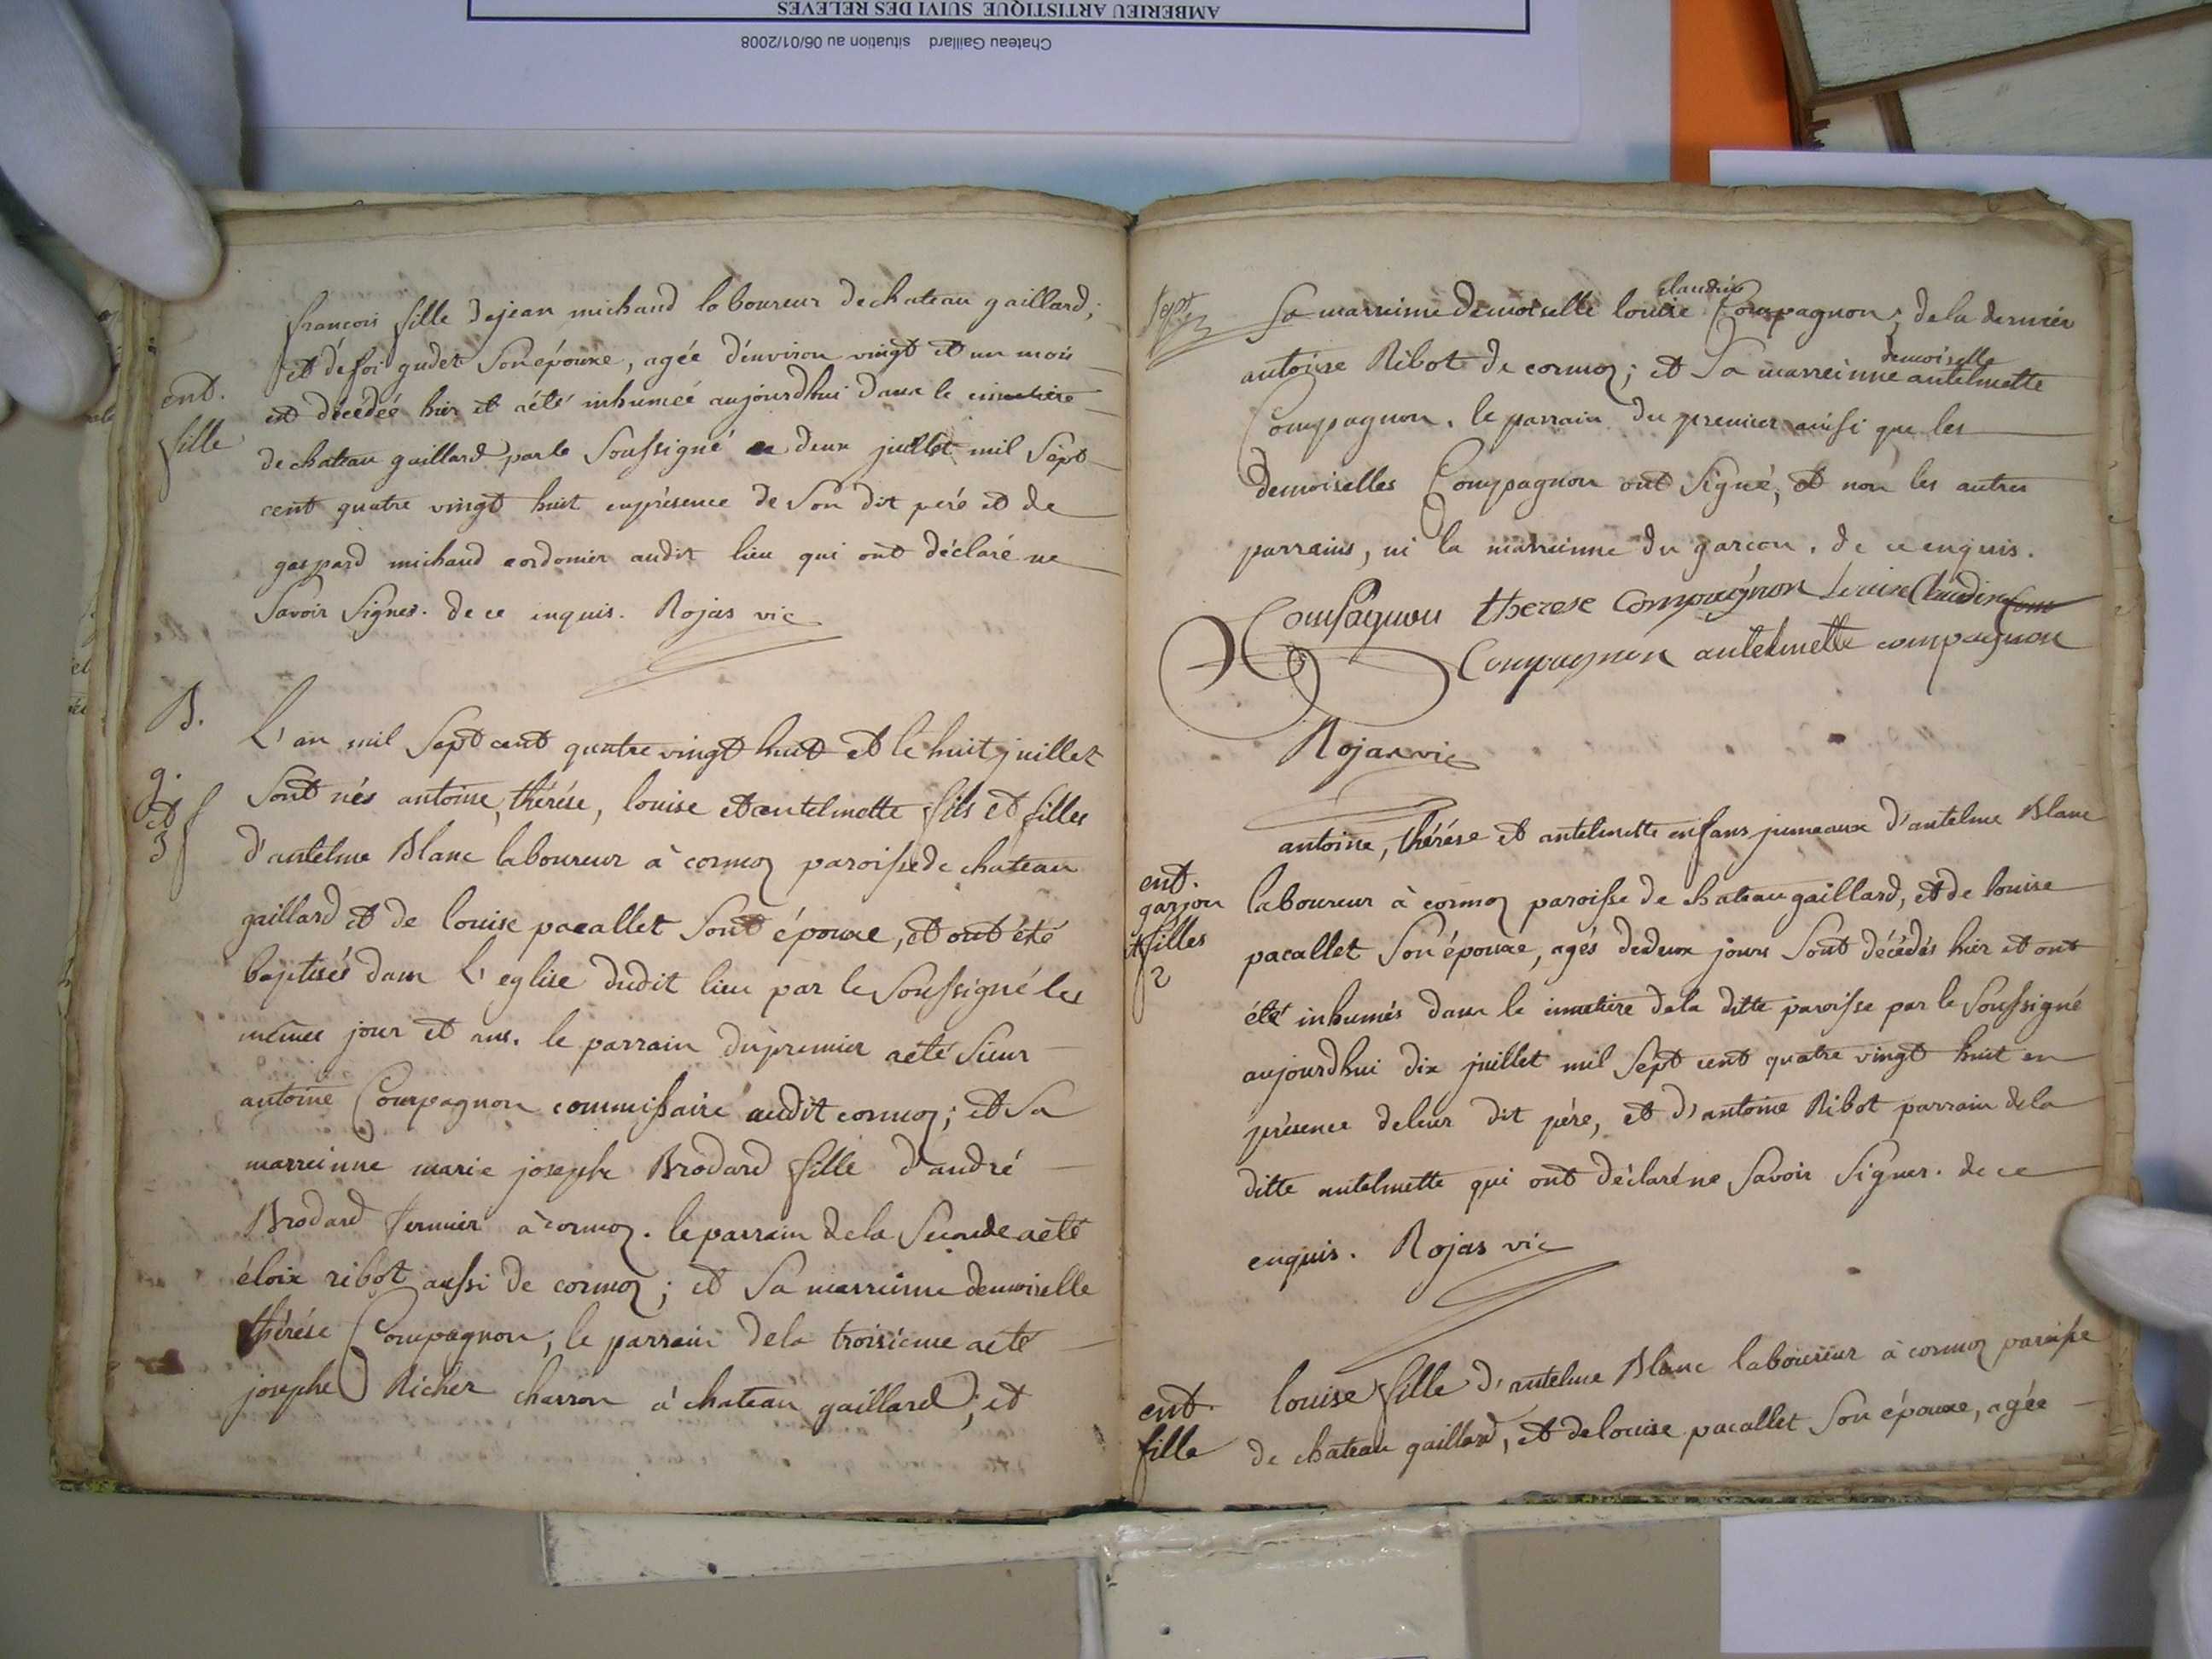 AMBERIEU ARTISTIQUE SUIVI DES RELEVES
Chateau Gaillard situation au 06/01/2008
francois fille de jean michaud laboureur de chateau gaillard,
et défoi gudet son épouxe, agée d'environ vingt et un mois
ent.
fille
est décédée hier et a été inhumée aujourdhui dans le cimetiere
de chateau gaillard par le soussigné ce deux juillet mil sept
cent quatre vingt huit en présence de son dit pere et de
gaspard michaud cordonier audit lieu qui ont déclaré ne
savoir signer. de ce enquis. Rojas vic
B.
g.
et
3 f
L'an mil sept cent quatre vingt huit et le huit juillet
sont nés antoine, thérése, louise et antelmette fils et filles
d'antelme Blanc laboureur à cormoz paroisse de chateau
gaillard et de louise pacallet sont épouxe, et ont été
baptisés dans l'eglise dudit lieu par le soussigné les
mêmes jour et ans. le parrain du premier a été sieur
antoine Compagnon commissaire audit cormoz; et sa
marreinne marie josephe Brodard fille d'andré
Brodard fermier à cormoz. le parrain de la seconde a été
éloix ribot aussi de cormoz; et sa marreinne demoiselle
thérése Compagnon; le parrain de la troisieme a été
josephe Richer charron à chateau gaillard; et
sept
sa marreinne demoiselle louise claudine Compagnon; de la dernier
antoine Ribot de cormoz; et sa marreinne demoiselle antelmette
Compagnon. le parrain du premier ainsi que les
demoiselles Compagnon ont signé, et non les autres
parrains, ni la marreinne du garcon. de ce enquis.
Compagnon therese compagnon Louise Claudine Com
Compagnon antelmette compagnon
Rojas vic
ent.
garçon
et filles
2
antoine, thérése et antelmette enfans jumeaux d'antelme Blanc
laboureur à cormoz paroisse de chateau gaillard, et de louise
pacallet son épouxe, agés de deux jours sont décédés hier et ont
été inhumés dans le cimetiere de la ditte paroisse par le soussigné
aujourdhui dix juillet mil sept cent quatre vingt huit en
présence de leur dit pére, et d'antoine Ribot parrain de la
ditte antelmette qui ont déclaré ne savoir signer. de ce
enquis. Rojas vic
ent.
fille
louise fille d'antelme Blanc laboureur à cormoz paroisse
de chateau gaillard, et de louise pacallet son épouxe, agée